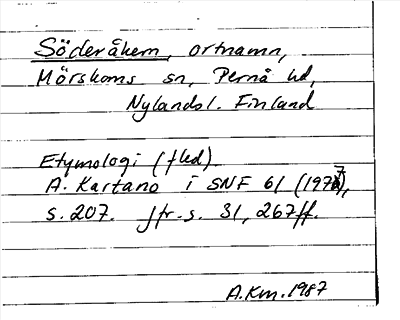 Söderåkern, ortnamn,
Mörskoms sn, Pernå hd,
Nylandsl. Finland
Etymologi (fled)
A. Kartano i SNF 61 (1977),
s. 207. Jfr. s. 31, 267ff.
A.Km. 1987